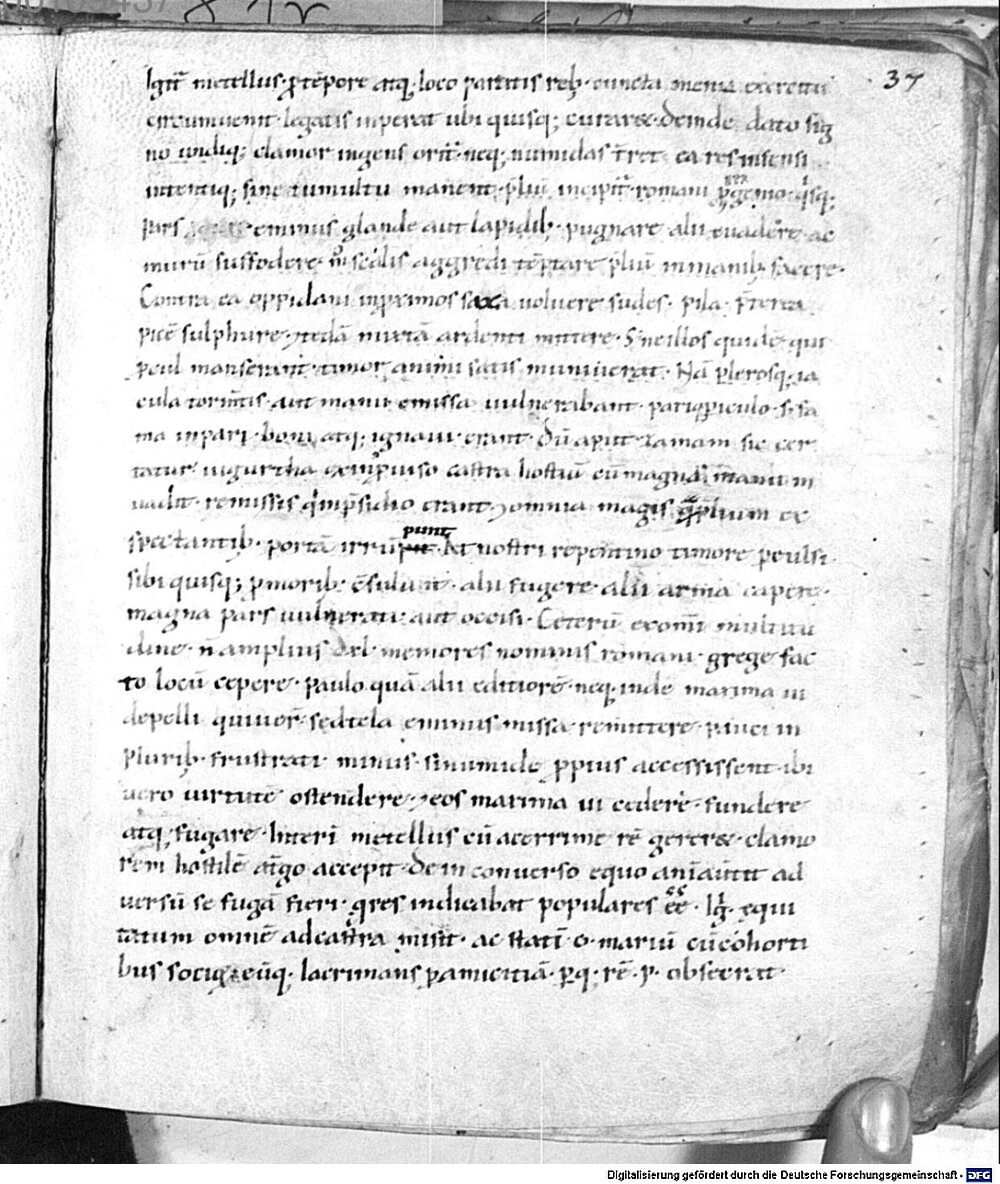 37
Igit᷑ metellus· ꝓ tēpore atq; loco paratis reb; cuncta menia exercitu
circumuenit· legatis inperat ubi quisq; curaret· deinde dato sig
no undiq; clamor ingens orit᷑· neq; numidas t̄ret ea res infensi
intentiq; sine tumultu manent· p̄liū incipit᷑· romani ꝓ ingenio q̇sq;
pars eminus glande aut lapidib; pugnare alii euadere ac
murū suffodere· m̊ scalis aggredi tēptare p̄liū in manib; facere·
Contra ea oppidani in ꝓximos saxa uoluere sudes· pila· p̄terea
picē sulphure· ⁊ tedā mixtā ardenti mittere· S; ne illos quidē qui
ꝓcul manserunt· timor animi satis muniuerat· Nā plerosq; ia
cula torm̄tis· aut manu emissa uulnerabant· pariq; periculo· s; fa
ma inpari· boni atq; ignaui erant· dū aput zamam sic cer
tatur iugurtha ex inꝓuiso castra hostiū cū magna manu in
uadit· remissis q̇ in p̄sidio erant ⁊ omnia magis q̄ p̄lium ex
spectantib; portā irrūpunt
punt· At nostri repentino timore ꝑculsi·
sibi quisq; ꝓ morib; c̄sulunt· alii fugere· alii arma capere·
magna pars uulnerati aut occisi· Ceterū ex om̄i multitu
dine· n̄ amplius dxl· memores nominis romani· grege fac
to locū cepere· paulo quā alii editiorē· neq; inde maxima ui
depelli quiuer̄· sed tela eminus missa· remittere· pauci in
plurib; frustrati minus· sin numide ꝓpius accessissent· ibi
uero uirtutē ostendere ⁊ eos maxima ui cedere· fundere
atq; fugare· Interī metellus cū acerrime rē gereret· clamo
rem hostilē a t̄go accepit· dein conuerso equo aniāuertit ad
uersū se fugā fieri· q̄ res indicabat populares eē· Ig̊· equi
tatum omnē ad castra misit· ac statī c· mariū cū cohorti
bus socioꝝ· eūq; lacrimans ꝑ amicitiā· ꝑq; rē· p· obsecrat·
Digitalisierung gefördert durch die Deutsche Forschungsgemeinschaft - DFG